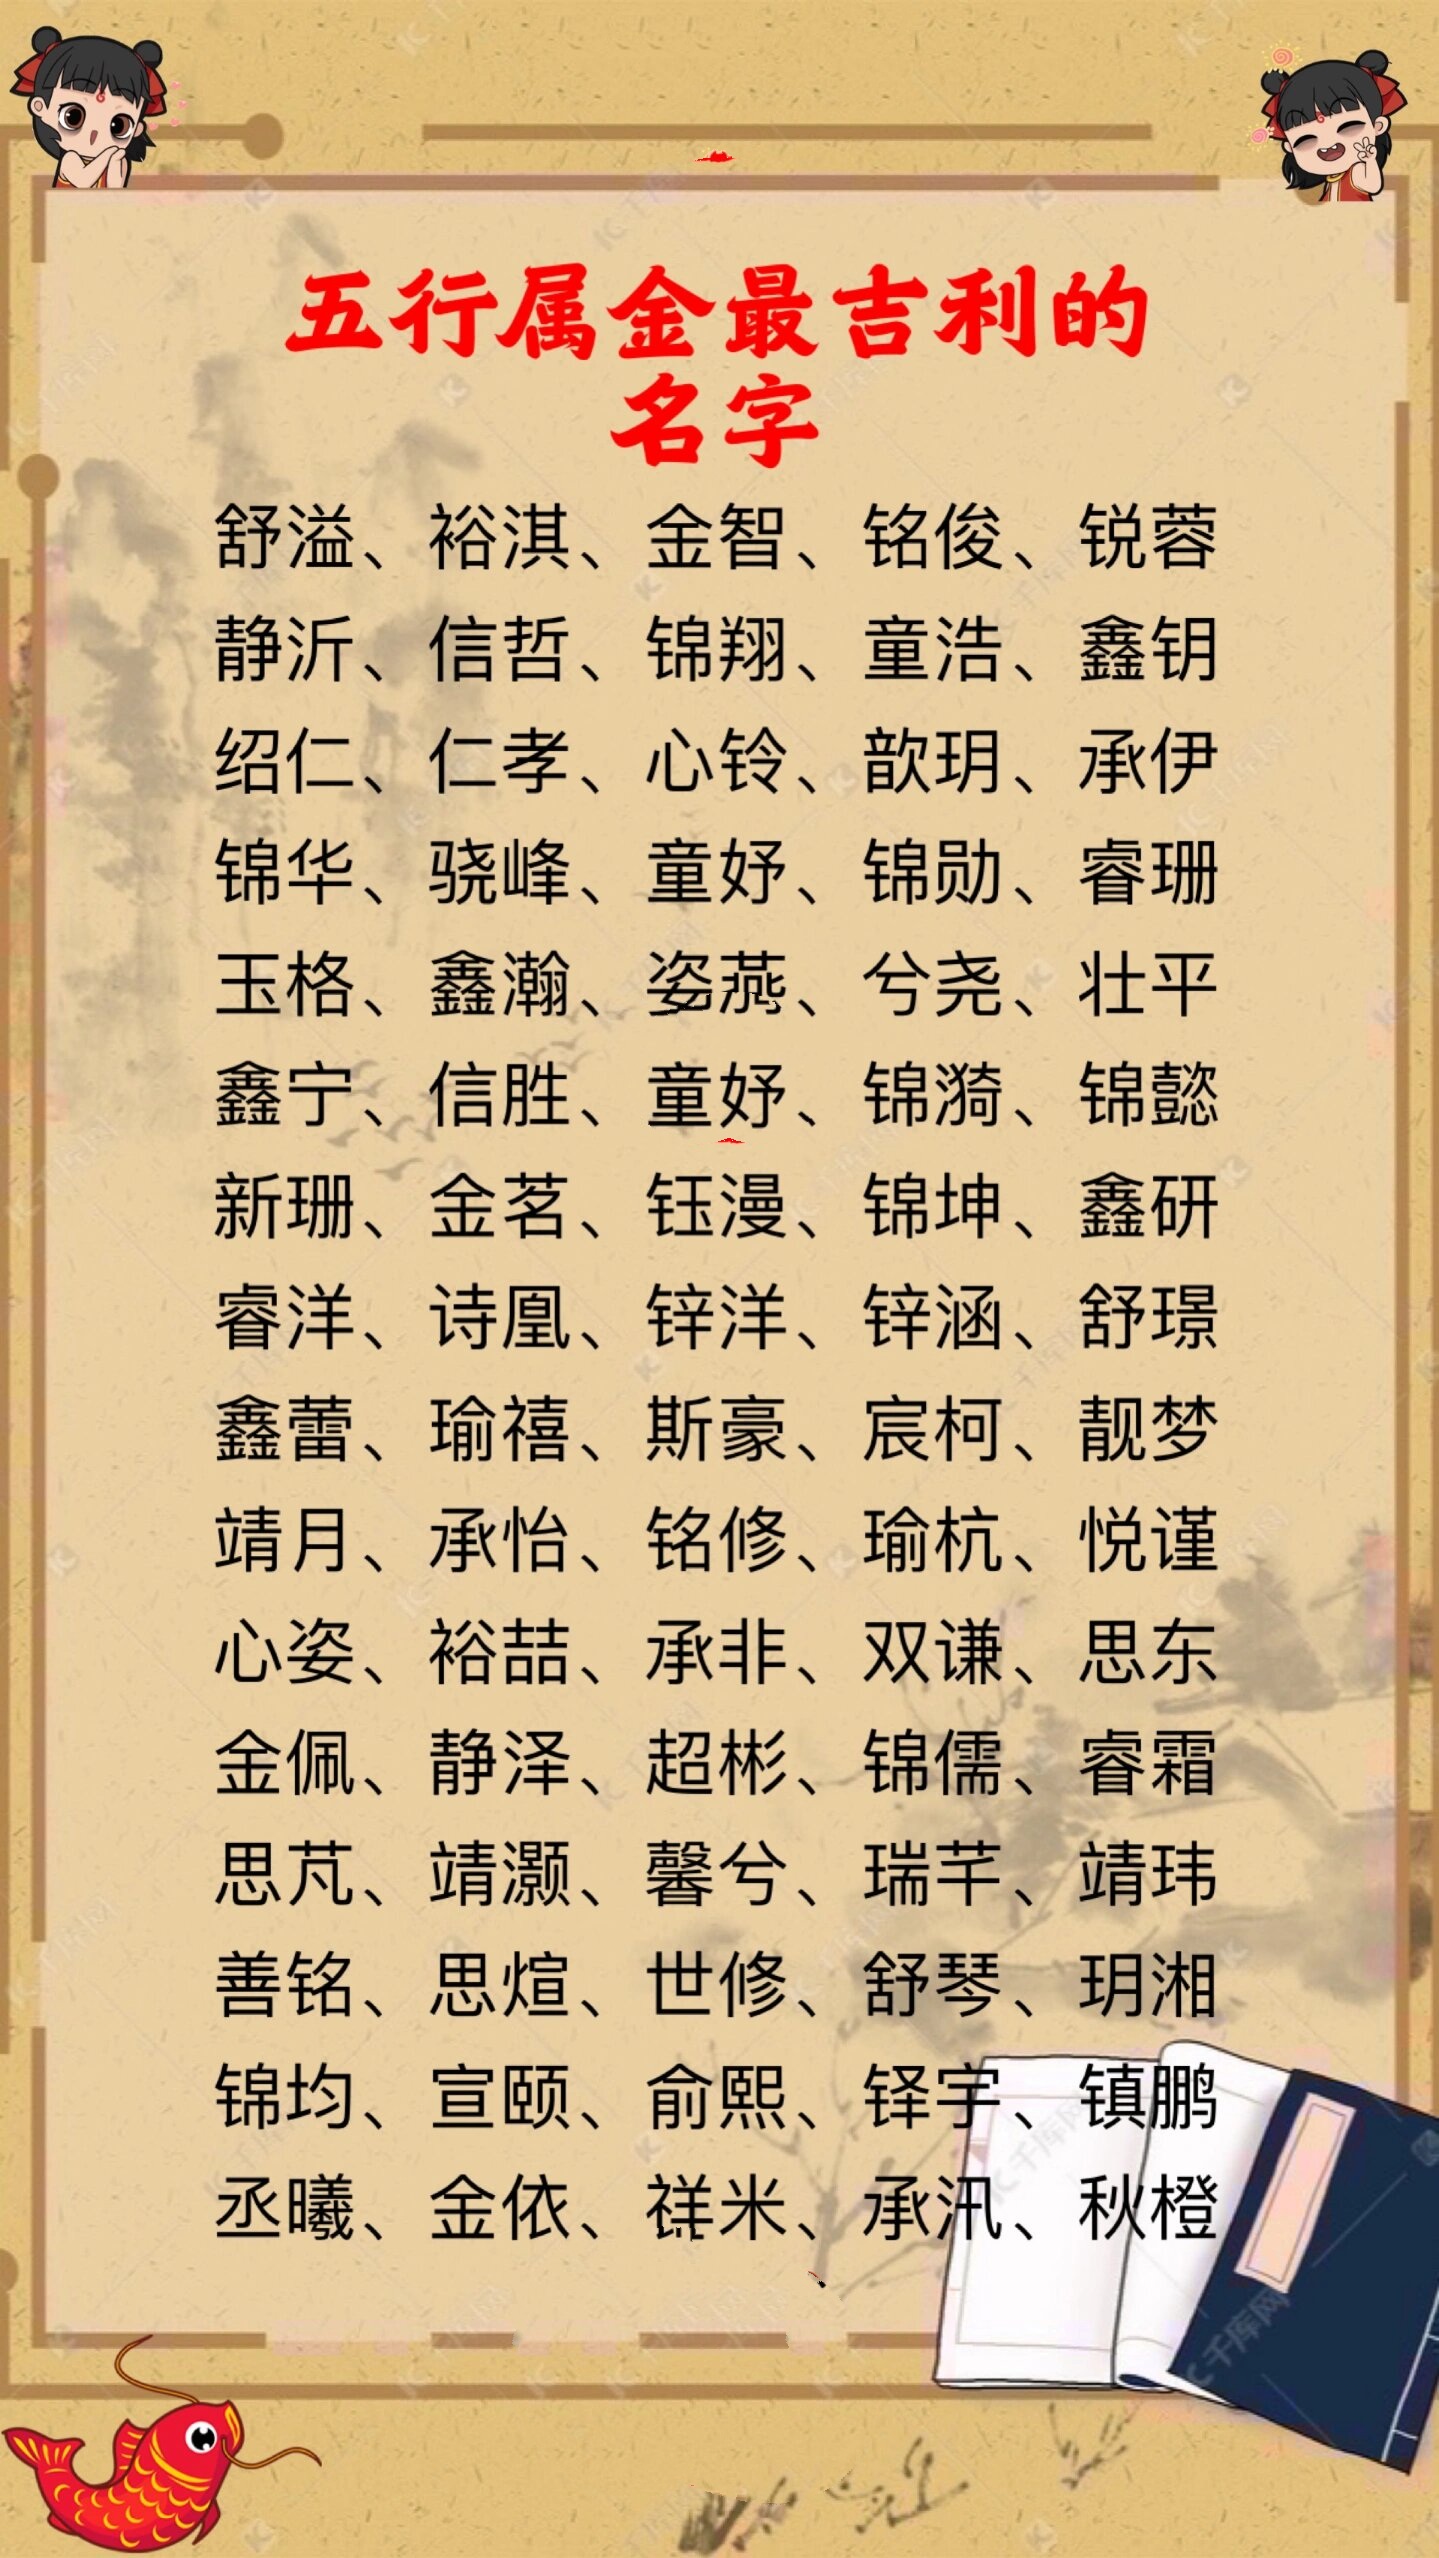 五行属金最吉利的
名字
舒溢、裕淇、金智、铭俊、锐蓉
静沂、信哲、锦翔、童浩、鑫钥
绍仁、仁孝、心铃、歆玥、承伊
锦华、骁峰、童妤、锦勋、睿珊
玉格、鑫瀚、姿燕、兮尧、壮平
鑫宁、信胜、童妤、锦漪、锦懿
新珊、金茗、钰漫、锦坤、鑫研
睿洋、诗凰、锌洋、锌涵、舒璟
鑫蕾、瑜禧、斯豪、宸柯、靓梦
靖月、承怡、铭修、瑜杭、悦谨
心姿、裕喆、承非、双谦、思东
金佩、静泽、超彬、锦儒、睿霜
思芃、靖灏、馨兮、瑞芊、靖玮
善铭、思煊、世修、舒琴、玥湘
锦均、宣颐、俞熙、铎宇、镇鹏
丞曦、金依、祥米、承汛、秋橙